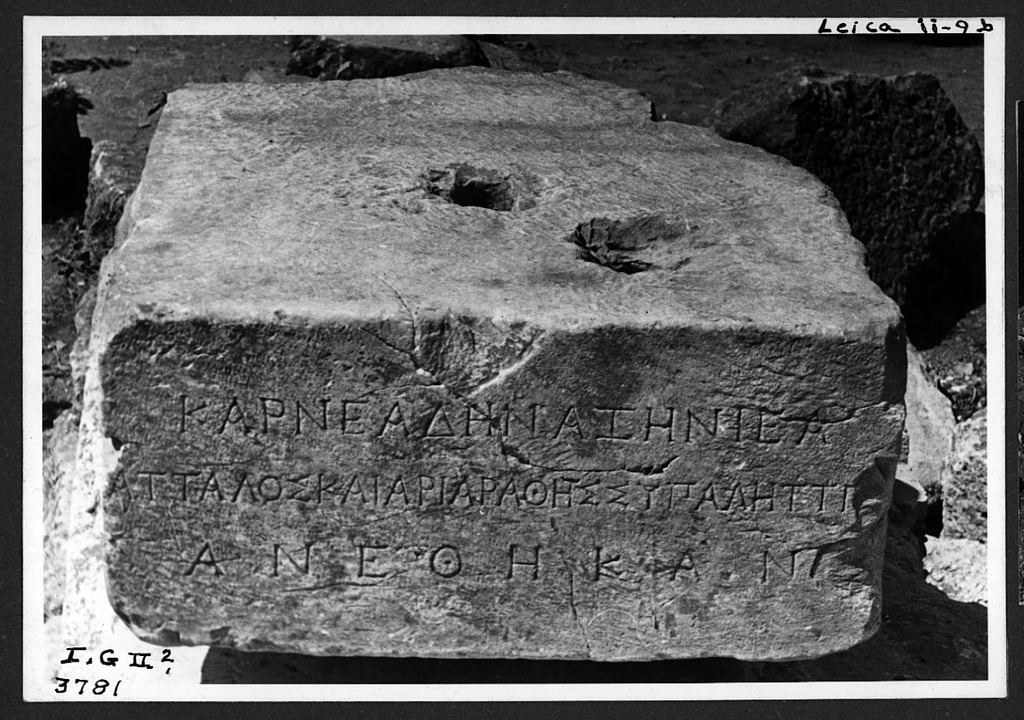 Leica ii-96
ΚΑΡΝΕΑΔΗΝΑΖΗΝΙΕΑ
ΑΤΤΑΛΟΣΚΑΙΑΡΙΑΡΑΘΗΣΣΥΠΑΛΗΤΤΙ
ΑΝΕΘΗΚΑΝ
I.G II².
3781